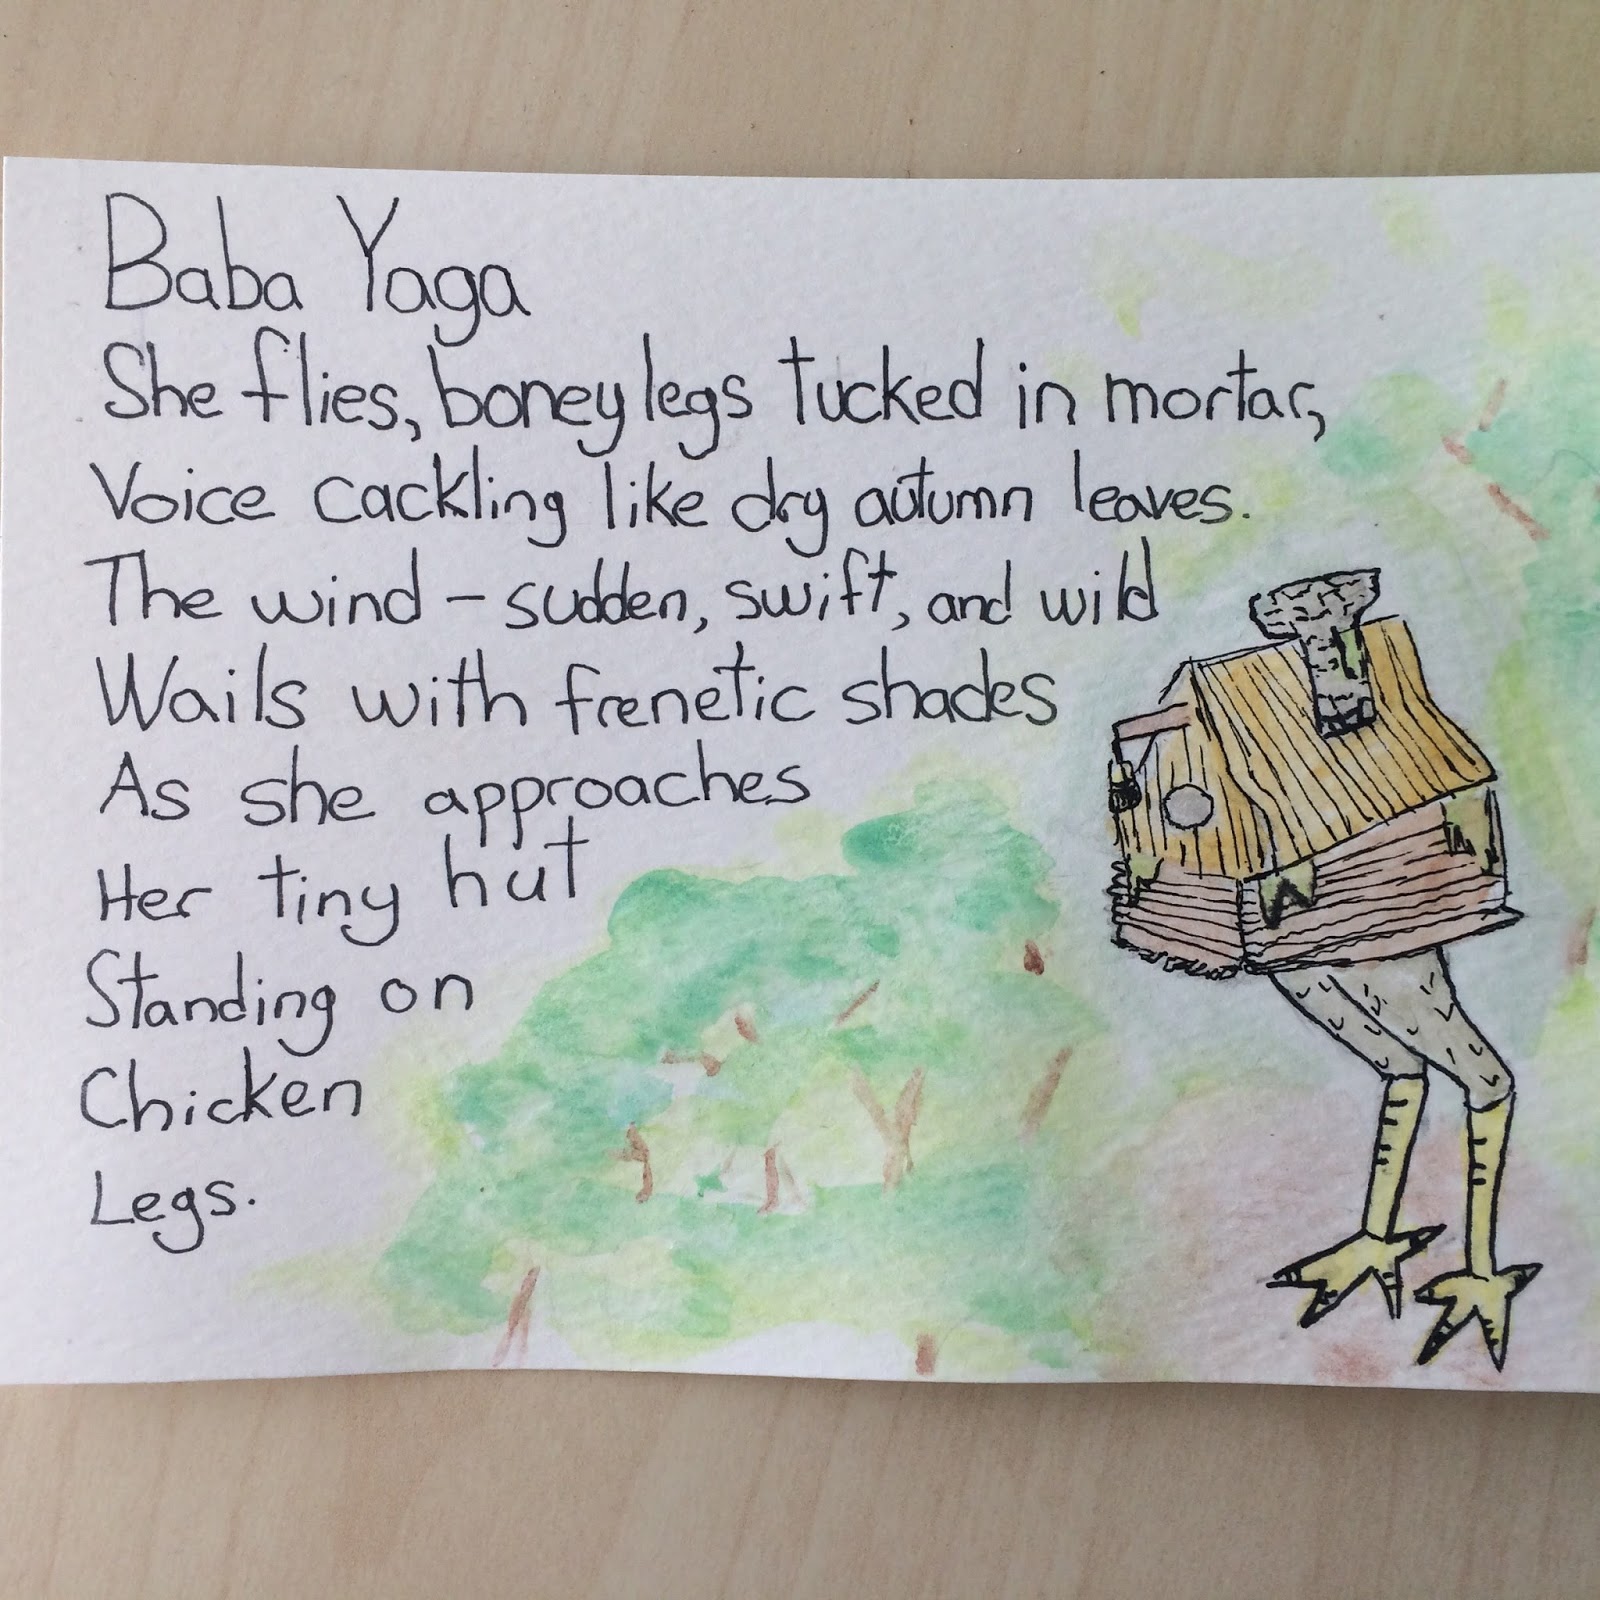 Baba Yaga
She flies, boney legs tucked in mortar,
Voice cackling like dry autumn leaves.
The wind – sudden, swift, and wild
Wails with frenetic shades
As she approaches
Her tiny hut
Standing on
Chicken
Legs.